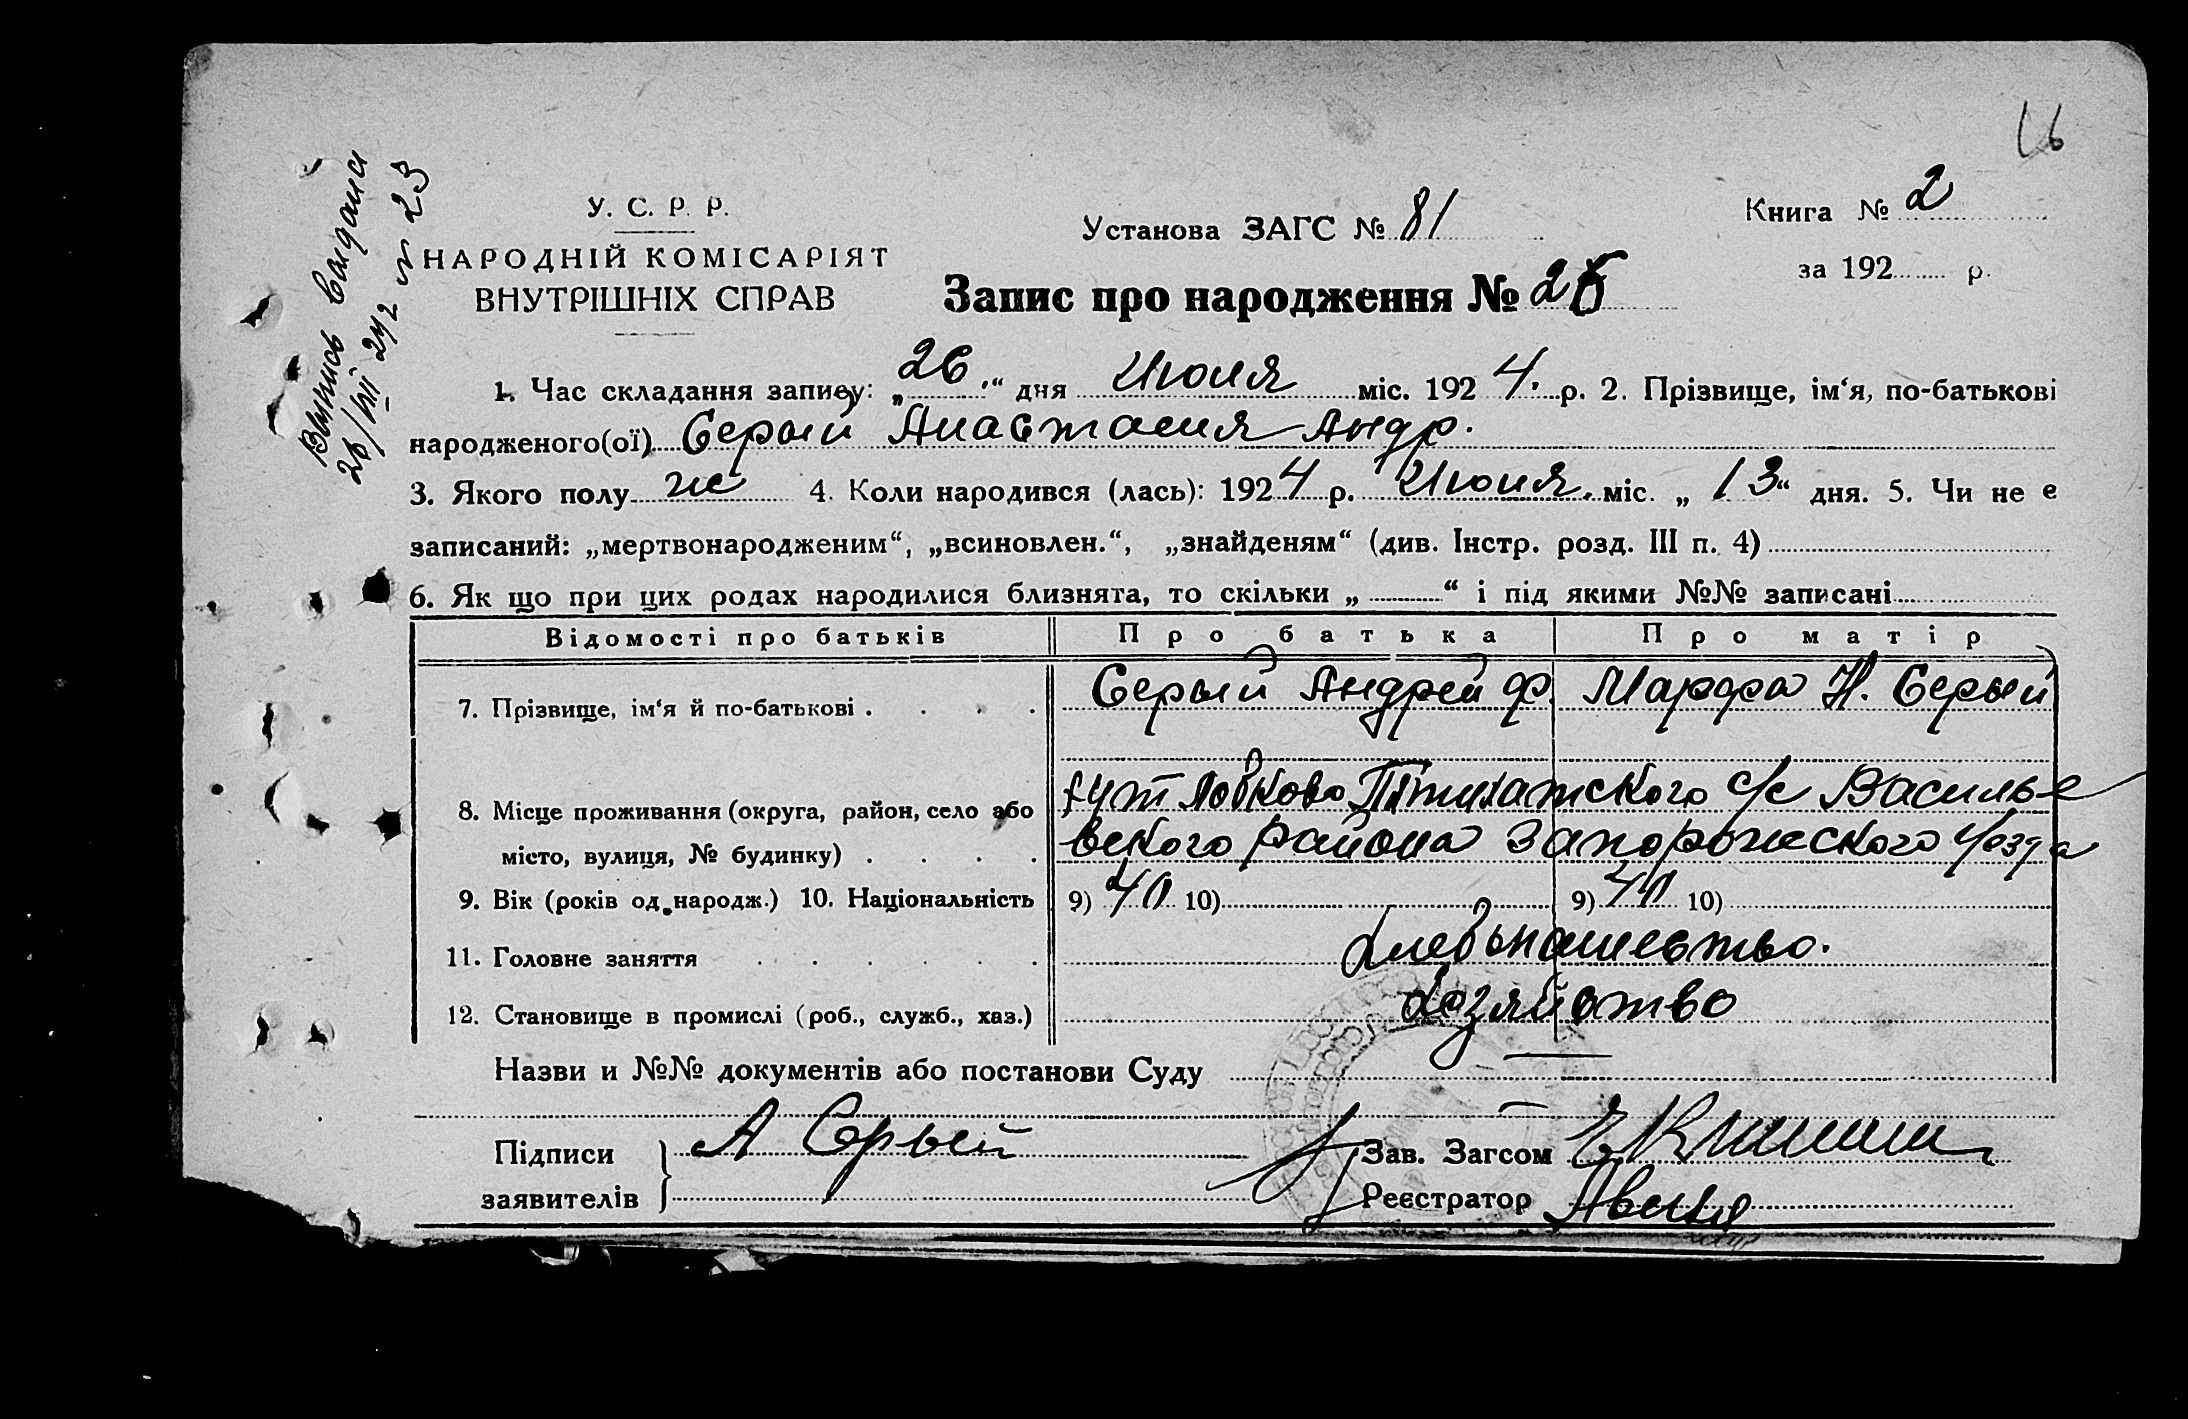 16
Выпись выдана
26/VII 24 г № 23
У. С. Р. Р.
НАРОДНІЙ КОМІСАРІЯТ
ВНУТРІШНІХ СПРАВ
Установа ЗАГС № 81
Книга № 2
за 192 р.
Запис про народження № 25
1. Час складання запису: „26“ дня Июля міс. 1924. р. 2. Прізвище, ім‘я, по-батькові
народженого(ої) Серый Анастасия Андр.
3. Якого полу же 4. Коли народився (лась): 1924 р. Июля. міс. „13“ дня. 5. Чи не є
записаний: „мертвонародженим“, „всиновлен.“, „знайденям“ (див. Інстр. розд. III п. 4)
6. Як що при цих родах народилися близнята, то скільки „ “ і під якими №№ записані
Відомості про батьків Про батька Про матір
7. Прізвище, ім‘я й по-батькові . . . . Серый Андрей Ф. Марфа Н. Серый
8. Місце проживання (округа, район, село або хут Лобково с/с Василье
місто, вулиця, № будинку) . . . . вского района Запорожского уезда
9. Вік (років од народж.) 10. Національність 9) 40 10) 9) 40 10)
11. Головне заняття . . . . . . Хлебопашество.
12. Становище в промислі (роб., служб., хаз.) Хозяйство
Назви и №№ документів або постанови Суду —
Підписи
заявителів
А Серый
Зав. Загсом
Реєстратор